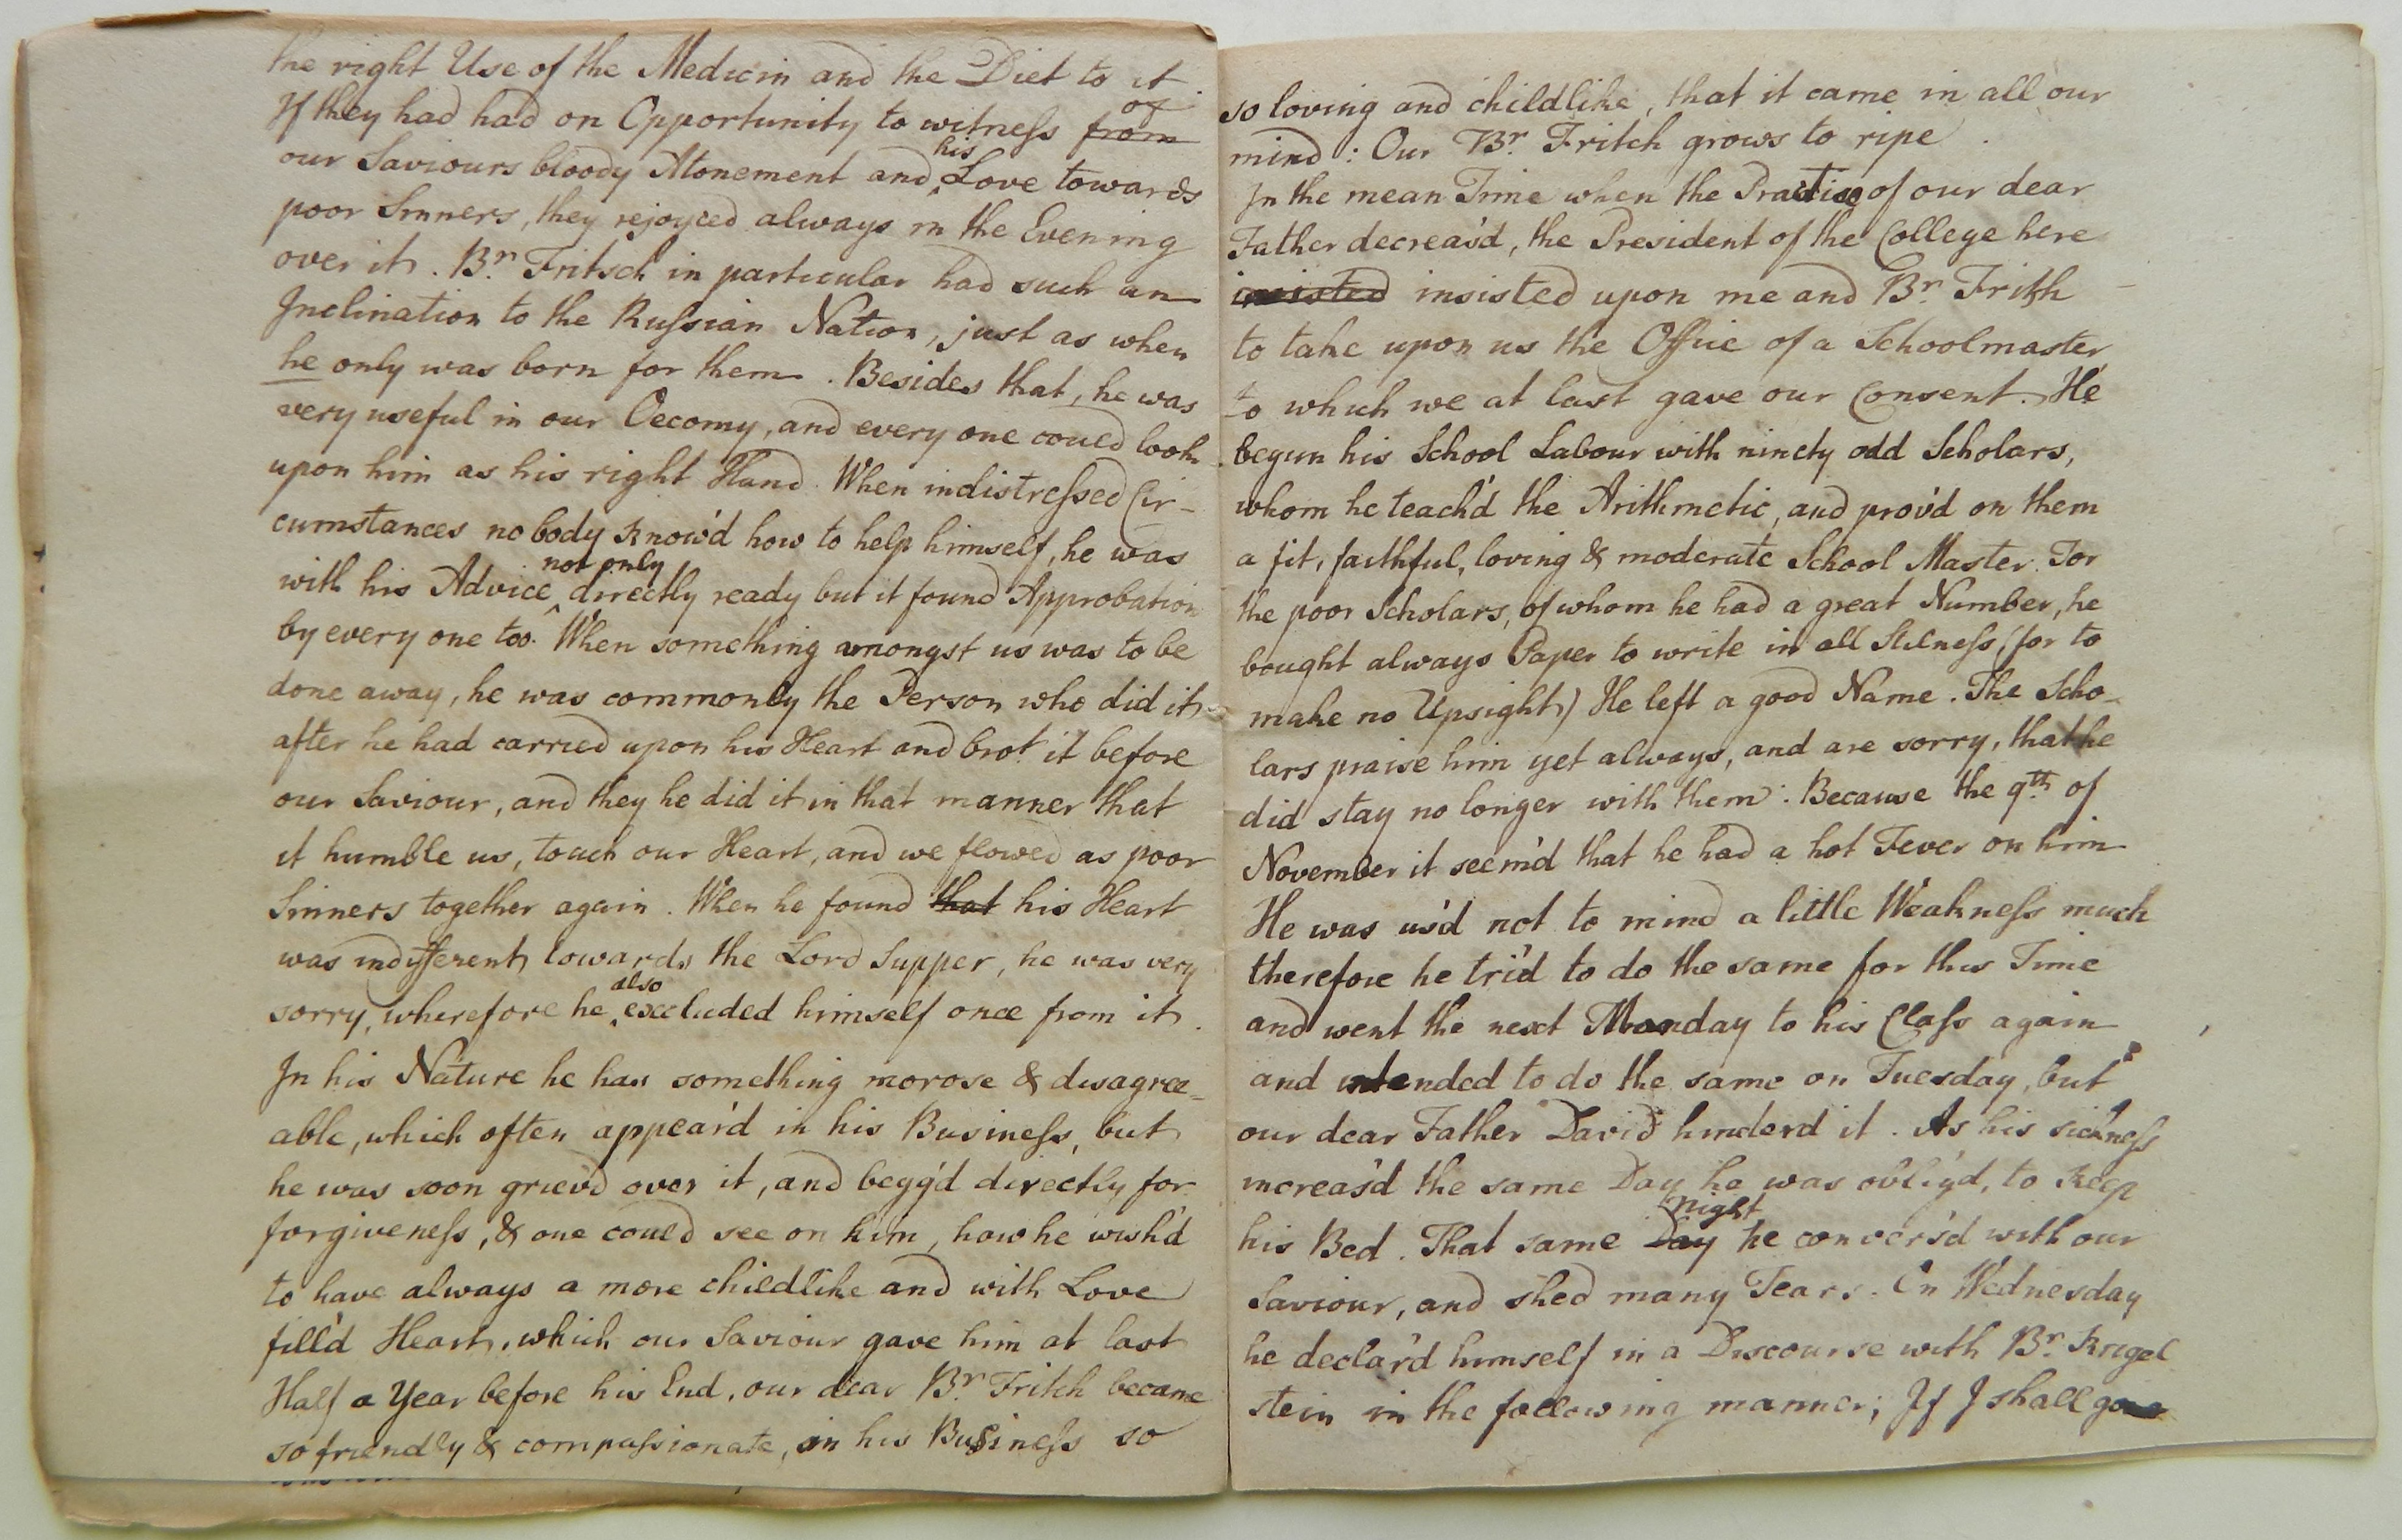 the right Use of the Medicin and the Diet to it
If they had had on Opportunity to witness from of
our Saviours bloody Atonement and his Love towards
poor Sinners, they rejoyced always in the Evening
over it. Br. Fritsch in particular had such an
Inclination to the Russian Nation, just as when
he only was born for them. Besides that, he was
very useful in our Oecomy, and every one coued look
upon him as his right Hand. When indistressed Cir-
cumstances nobody know'd how to help himself, he was
with his Advice not only directly ready but it found Approbation
by every one too. When something amongst us was to be
done away, he was commonly the Person who did it
after he had carried upon his Heart and brot. it before
our Saviour, and they he did it in that manner that
it humble us, touch our Heart, and we flowed as poor
Sinners together again. When he found that his Heart
was indifferent towards the Lord Supper, he was very
sorry, wherefore he also excluded himself once from it.
In his Nature he has something morose & disagree-
able, which often appear'd in his Business, but
he was soon grievd over it, and begg'd directly for
forgiveness, & one coued see on him, how he wish'd
to have always a more childlike and with Love
fill'd Heart, which our Saviour gave him at last
Half a Year before his End, our dear Br. Fritch became
so friendly & compassionate, in his Business so
so loving and childlike, that it came in all our
mind: Our Br. Fritch grows to ripe.
In the mean Time when the Practice of our dear
Father decreas'd, the President of the College here
insisted insisted upon me and Br. Frith
to take upon us the Office of a Schoolmaster
to which we at last gave our Consent. He
begun his School Labour with ninety odd Scholars,
whom he teach'd the Arithmetic, and prov'd on them
a fit, faithful, loving & moderate School Master. For
the poor Scholars, of whom he had a great Number, he
bought always Paper to write in all Stilness, (for to
make no Upsight) He left a good Name. The Scho-
lars praise him yet always, and are sorry, that he
did stay no longer with them: Because the 9th of
November it seem'd that he had a hot Fever on him
He was us'd not to mind a little Weakness much
therefore he tri'd to do the same for this Time
and went the next Monday to his Class again
and intended to do the same on Tuesday, but
our dear Father David hinderd it. As his sickness
increas'd the same Day he was oblig'd, to keep
his Bed. That same Day night he convers'd with our
Saviour, and shed many Tears. On Wednesday
he declar'd himself in a Discourse with Br. Krigel
stein in the following manner; If I shall go